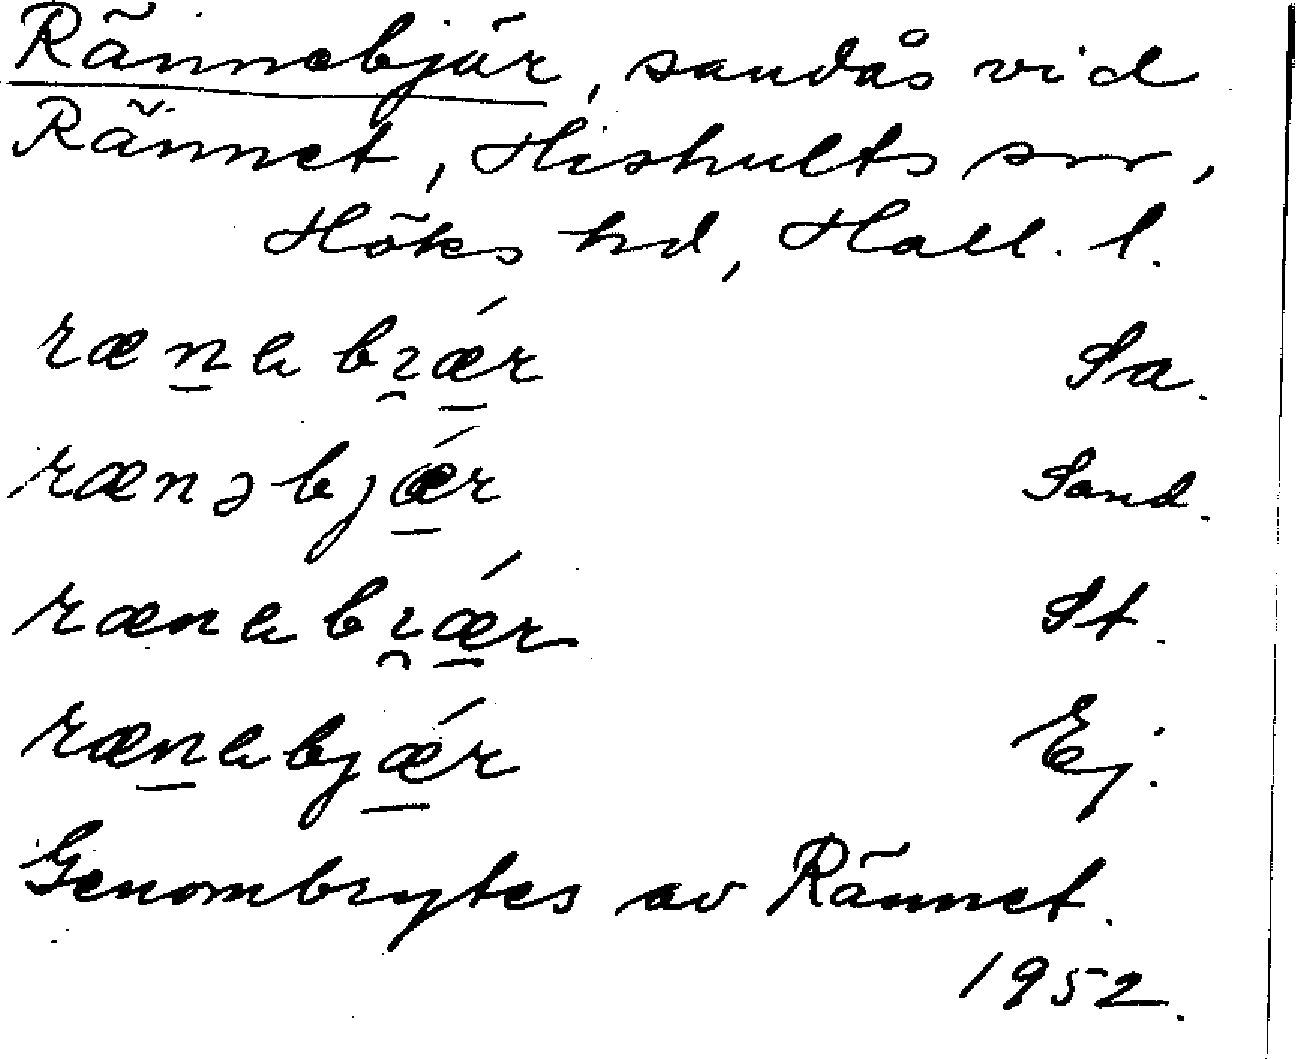 Rännebjär, sandås vid
Rännet, Hishults snr,
Höks hd, Hall. l.
ræn̲a bı̯ǽ̲r Sa.
rænəbjǽ̲r Sand.
ræna bı̯ǽ̲r St.
ræn̲abjǽ̲r Ej.
Genombrytes av Rännet.
1952.